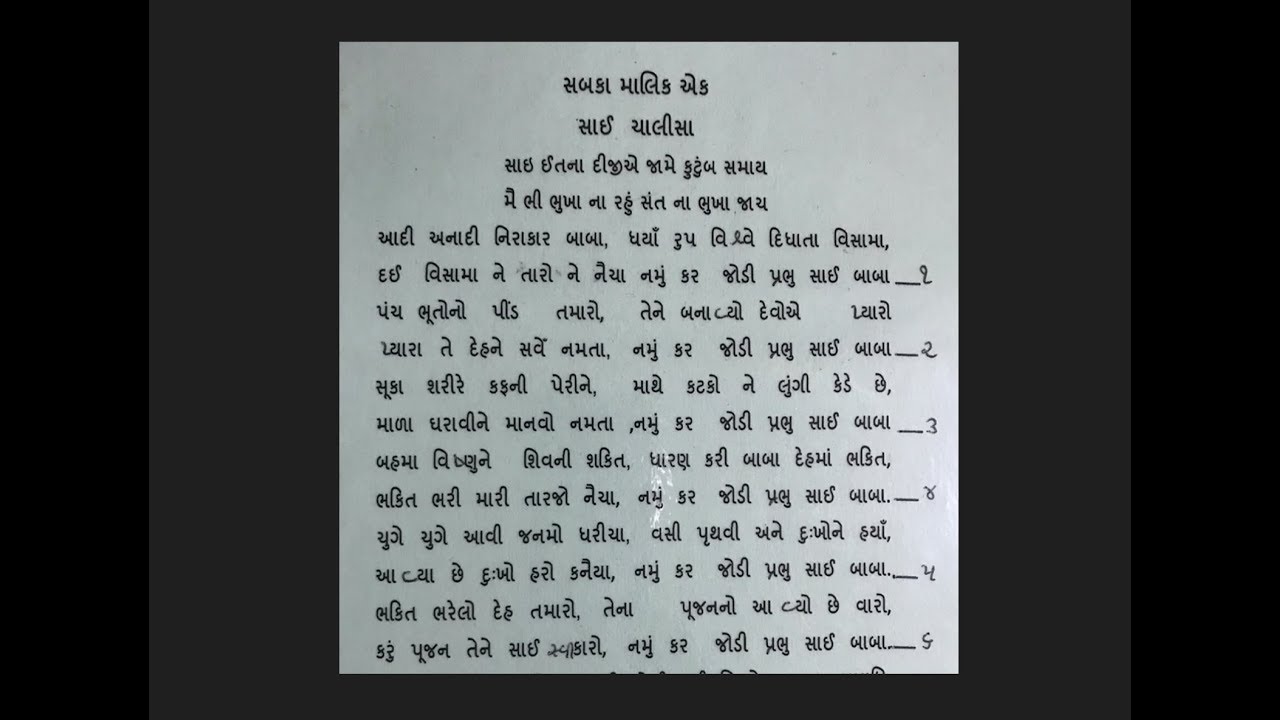 સબકા માલિક એક
સાઈ ચાલીસા
સાઇ ઈતના દીજીએ જામે કુટુંબ સમાય
મૈ ભી ભુખા ના રહું સંત ના ભુખા જાય
આદી અનાદી નિરાકાર બાબા, ધર્યાં રુપ વિશ્વે દિધાતા વિસામા,
દઈ વિસામા ને તારો ને નૈયા નમું કર જોડી પ્રભુ સાઈ બાબા __૧
પંચ ભૂતોનો પીંડ તમારો, તેને બનાવ્યો દેવોએ પ્યારો
પ્યારા તે દેહને સર્વે નમતા, નમું કર જોડી પ્રભુ સાઈ બાબા __૨
સૂકા શરીરે કફની પેરીને, માથે કટકો ને લુંગી કેડે છે,
માળા ધરાવીને માનવો નમતા ,નમું કર જોડી પ્રભુ સાઈ બાબા __૩
બહમા વિષ્ણુને શિવની શકિત, ધારણ કરી બાબા દેહમાં ભકિત,
ભકિત ભરી મારી તારજો નૈયા, નમું કર જોડી પ્રભુ સાઈ બાબા.__૪
યુગે યુગે આવી જનમો ધરીયા, વસી પૃથવી અને દુઃખોને હર્યાં,
આવ્યા છે દુઃખો હરો કનૈયા, નમું કર જોડી પ્રભુ સાઈ બાબા.__૫
ભકિત ભરેલો દેહ તમારો, તેના પૂજનનો આવ્યો છે વારો,
કરું પૂજન તેને સાઈ સ્વીકારો, નમું કર જોડી પ્રભુ સાઈ બાબા.__૬